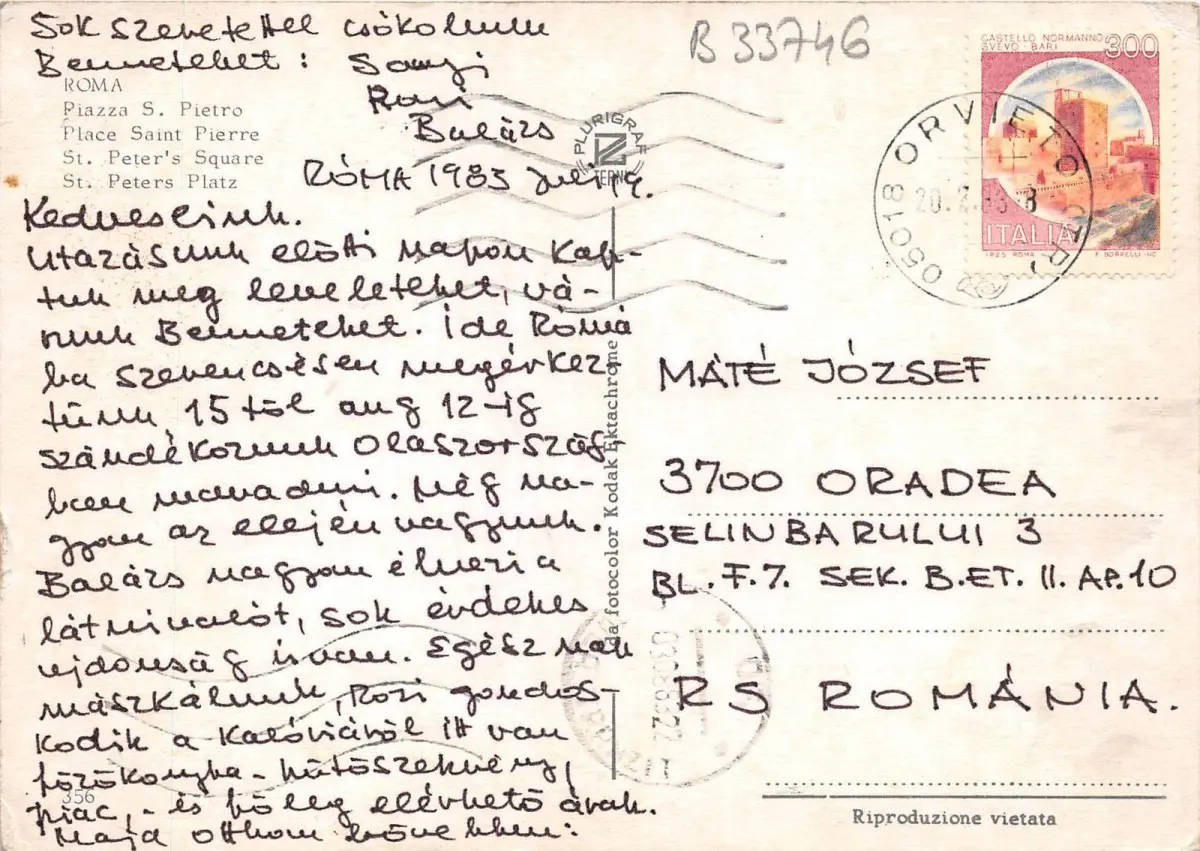 Sok szeretettel csókolunk
Benneteket:
Rozi
Balázs
RÓMA 1983 juli 19.
Kedveseink.
Utazásunk előtti napon kap-
tuk meg leveleteket, vá-
runk Benneteket. Ide Rómá
ba szerencsésen megérkez-
tünk 15 től aug 12-ig
szándékozunk Olaszország-
ban maradni. Még na-
gyon az elején vagyunk.
Balázs nagyon élvezi a
látnivalót, sok érdekes
ujdonság is van. Egész nap
mászkálunk, Rozi gondos-
kodik a kalóriáról itt van
főzőkonyha - hűtőszekrény,
piac, - és főleg elérhető árak.
Majd otthon bővebben:
ROMA
Piazza S. Pietro
Place Saint Pierre
St. Peter's Square
St. Peters Platz
356
B 33746
PLURIGRAF
TERNI
da fotocolor Kodak Ektachrome
CASTELLO NORMANNO
SVEVO - BARI
300
ITALIA
I.P.Z.S. ROMA
F. BORRELLI - INC.
05018 ORVIETO
MÁTÉ JÓZSEF
3700 ORADEA
SELINBARULUI 3
BL. F.7. SEK. B.ET. II. AP.10
RS ROMÁNIA.
Riproduzione vietata